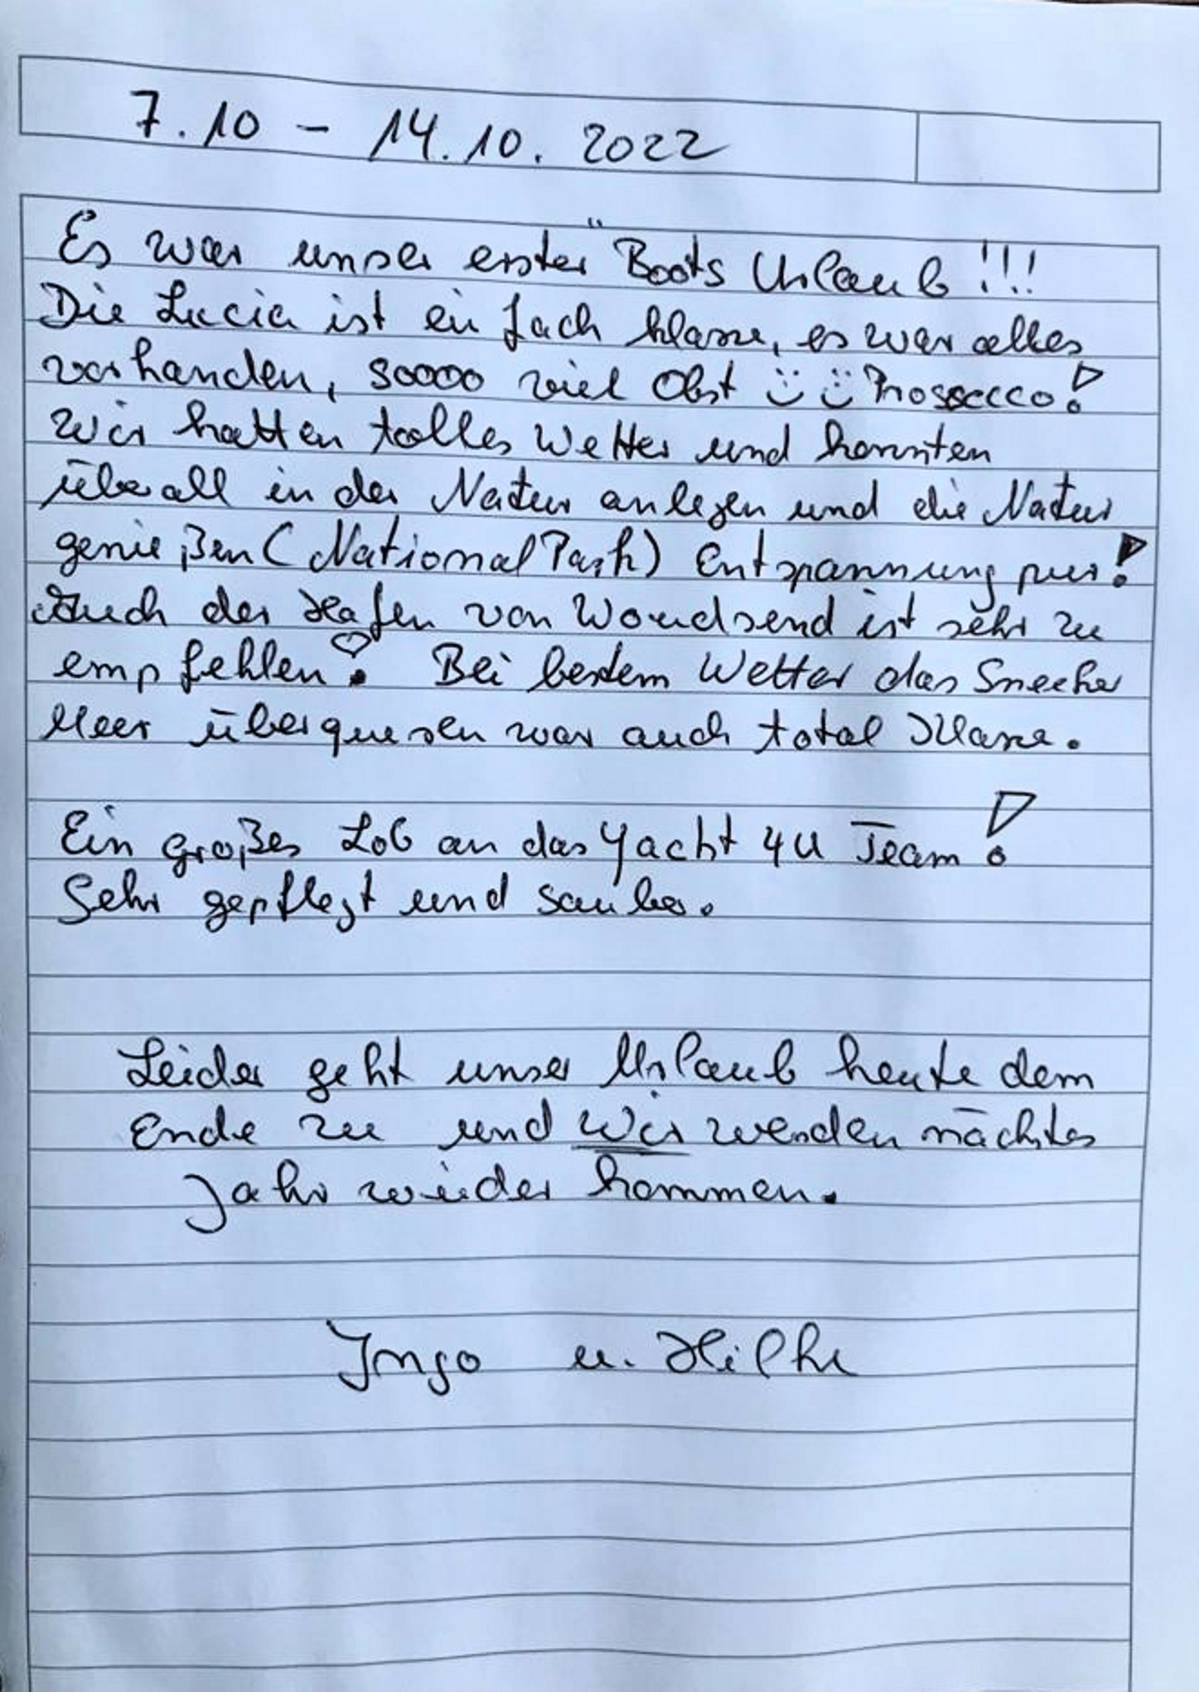 7.10 - 14.10. 2022
Es war unser erster "Boots Urlaub!!!
Die Lucia ist ein fach klasse, es war alles
vorhanden, soooo viel Obst :) :) Prosecco!
Wir hatten tolles Wetter und konnten
überall in der Natur anlegen und die Natur
genießen (National Park) Entspannung pur!
Auch der Hafen von Woudsend ist sehr zu
empfehlen! Bei bestem Wetter das Sneeker
Meer überqueren war auch total Klasse.
Ein großes Lob an das Yacht 4U Team!
Sehr gepflegt und sauber.
Leider geht unser Urlaub heute dem
Ende zu und wir werden nächstes
Jahr wieder kommen.
Ingo u. Hilke